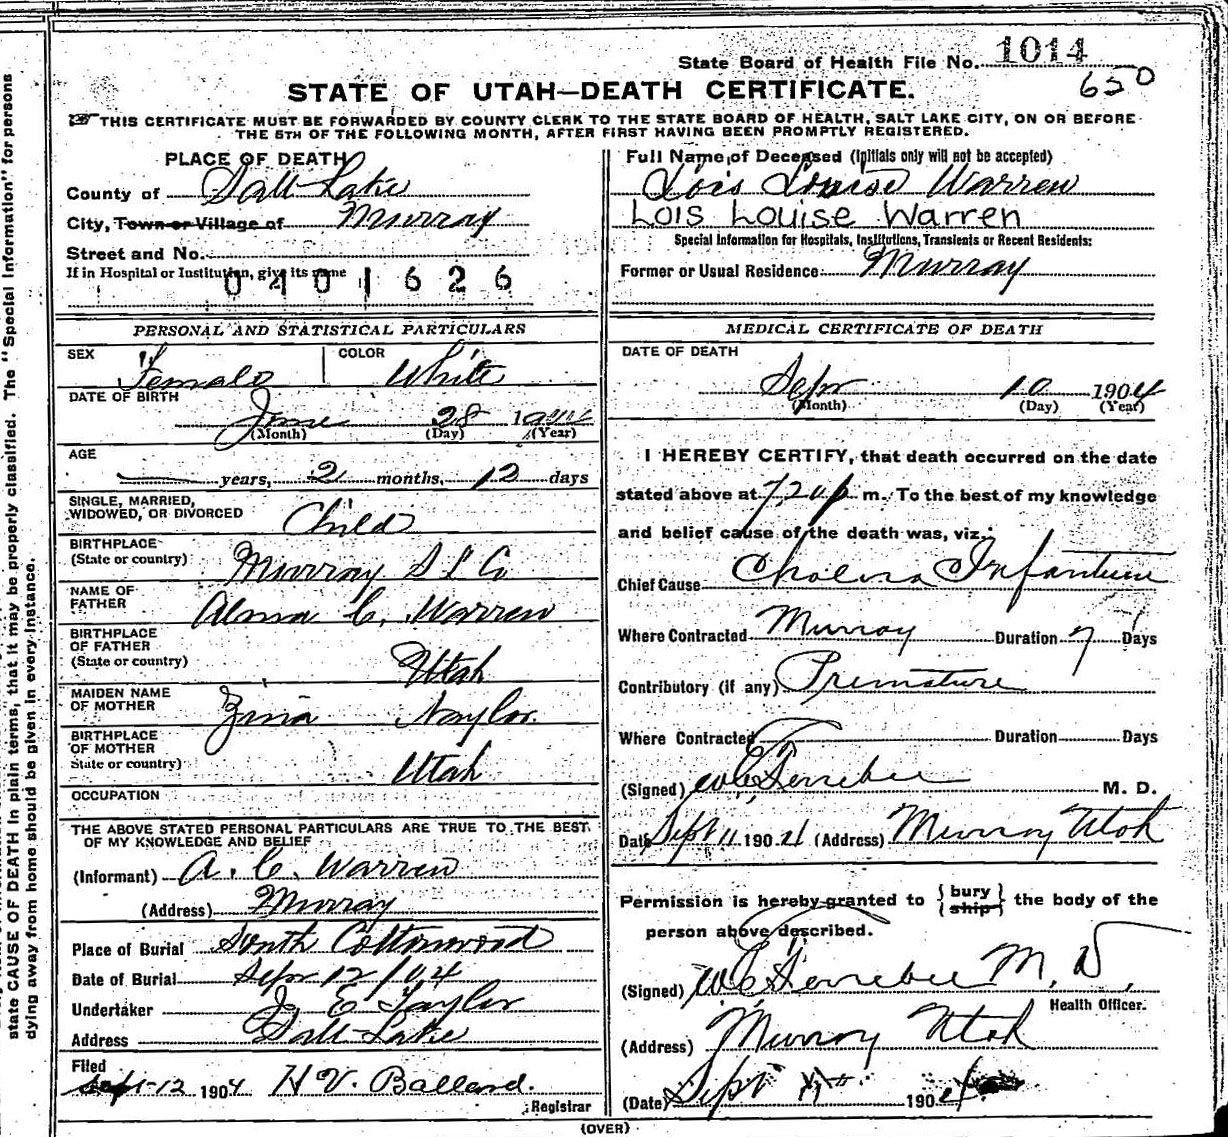 State Board of Health File No. 1014
650
STATE OF UTAH—DEATH CERTIFICATE.
THIS CERTIFICATE MUST BE FORWARDED BY COUNTY CLERK TO THE STATE BOARD OF HEALTH, SALT LAKE CITY, ON OR BEFORE
THE 5TH OF THE FOLLOWING MONTH, AFTER FIRST HAVING BEEN PROMPTLY REGISTERED.
PLACE OF DEATH
County of Salt Lake
City, Town or Village of Murray
Street and No.
If in Hospital or Institution, give its name
0401626
Full Name of Deceased (Initials only will not be accepted)
Lois Louise Warren
Lois Louise Warren
Special Information for Hospitals, Institutions, Transients or Recent Residents:
Former or Usual Residence: Murray
PERSONAL AND STATISTICAL PARTICULARS
SEX Female COLOR White
DATE OF BIRTH
June 28 1904
(Month) (Day) (Year)
AGE
years, 2 months, 12 days
SINGLE, MARRIED,
WIDOWED, OR DIVORCED Child
BIRTHPLACE
(State or country) Murray S L Co
NAME OF
FATHER Alma C. Warren
BIRTHPLACE
OF FATHER
(State or country) Utah
MAIDEN NAME
OF MOTHER Zina Naylor.
BIRTHPLACE
OF MOTHER
State or country) Utah
OCCUPATION
THE ABOVE STATED PERSONAL PARTICULARS ARE TRUE TO THE BEST
OF MY KNOWLEDGE AND BELIEF
(Informant) A. C. Warren
(Address) Murray
Place of Burial South Cottonwood
Date of Burial Sepr 12/04
Undertaker J E Taylor
Address Salt Lake
Filed
Sept-12 1904 H V. Ballard.
Registrar
MEDICAL CERTIFICATE OF DEATH
DATE OF DEATH
Sepr 10 1904
(Month) (Day) (Year)
I HEREBY CERTIFY, that death occurred on the date
stated above at 7.20 p m. To the best of my knowledge
and belief cause of the death was, viz.:
Chief Cause Cholera Infantum
Where Contracted Murray Duration 7 Days
Contributory (if any) Premature
Where Contracted Duration Days
(Signed) W C Ferrebee M. D.
Date Sept 11 1904 (Address) Murray Utah
Permission is hereby granted to { bury ship } the body of the
person above described.
(Signed) W C Ferrebee M. D.
Health Officer.
(Address) Murray Utah
(Date) Sept 1904
(OVER)
state CAUSE OF DEATH in plain terms, that it may be properly classified. The "Special Information" for persons
dying away from home should be given in every instance.